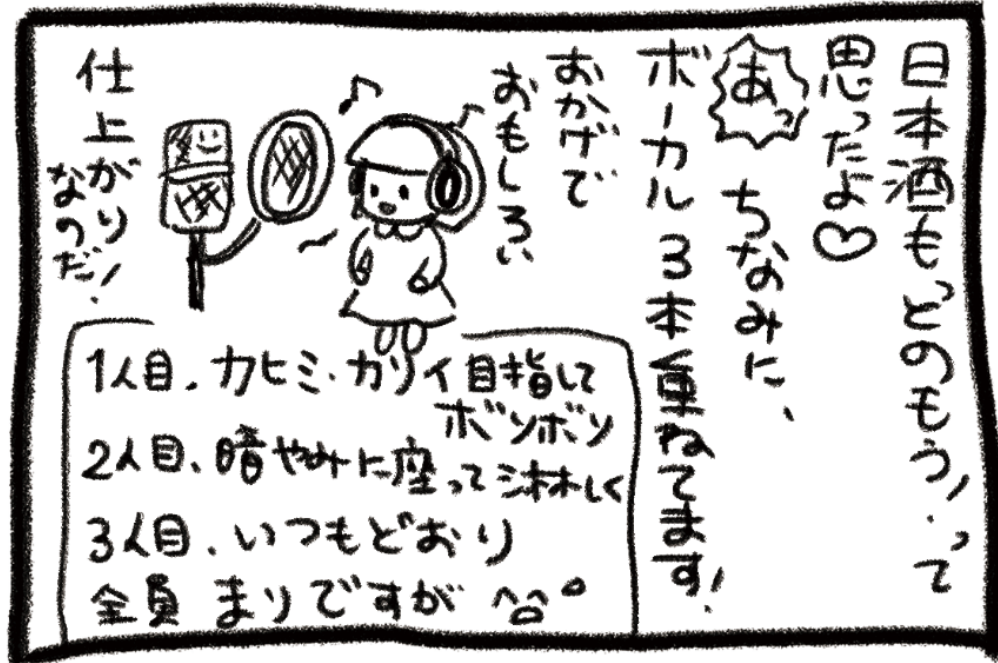 日本酒もっとのもう!って
思ったよ♡
あっ
ちなみに、
ボーカル3本重ねてます!
おかげで
おもしろい
仕上がり
なのだ!
1人目、カヒミ・カリィ目指して
ボソボソ
2人目、暗やみに座って淋しく
3人目、いつもどおり
全員 まりですが